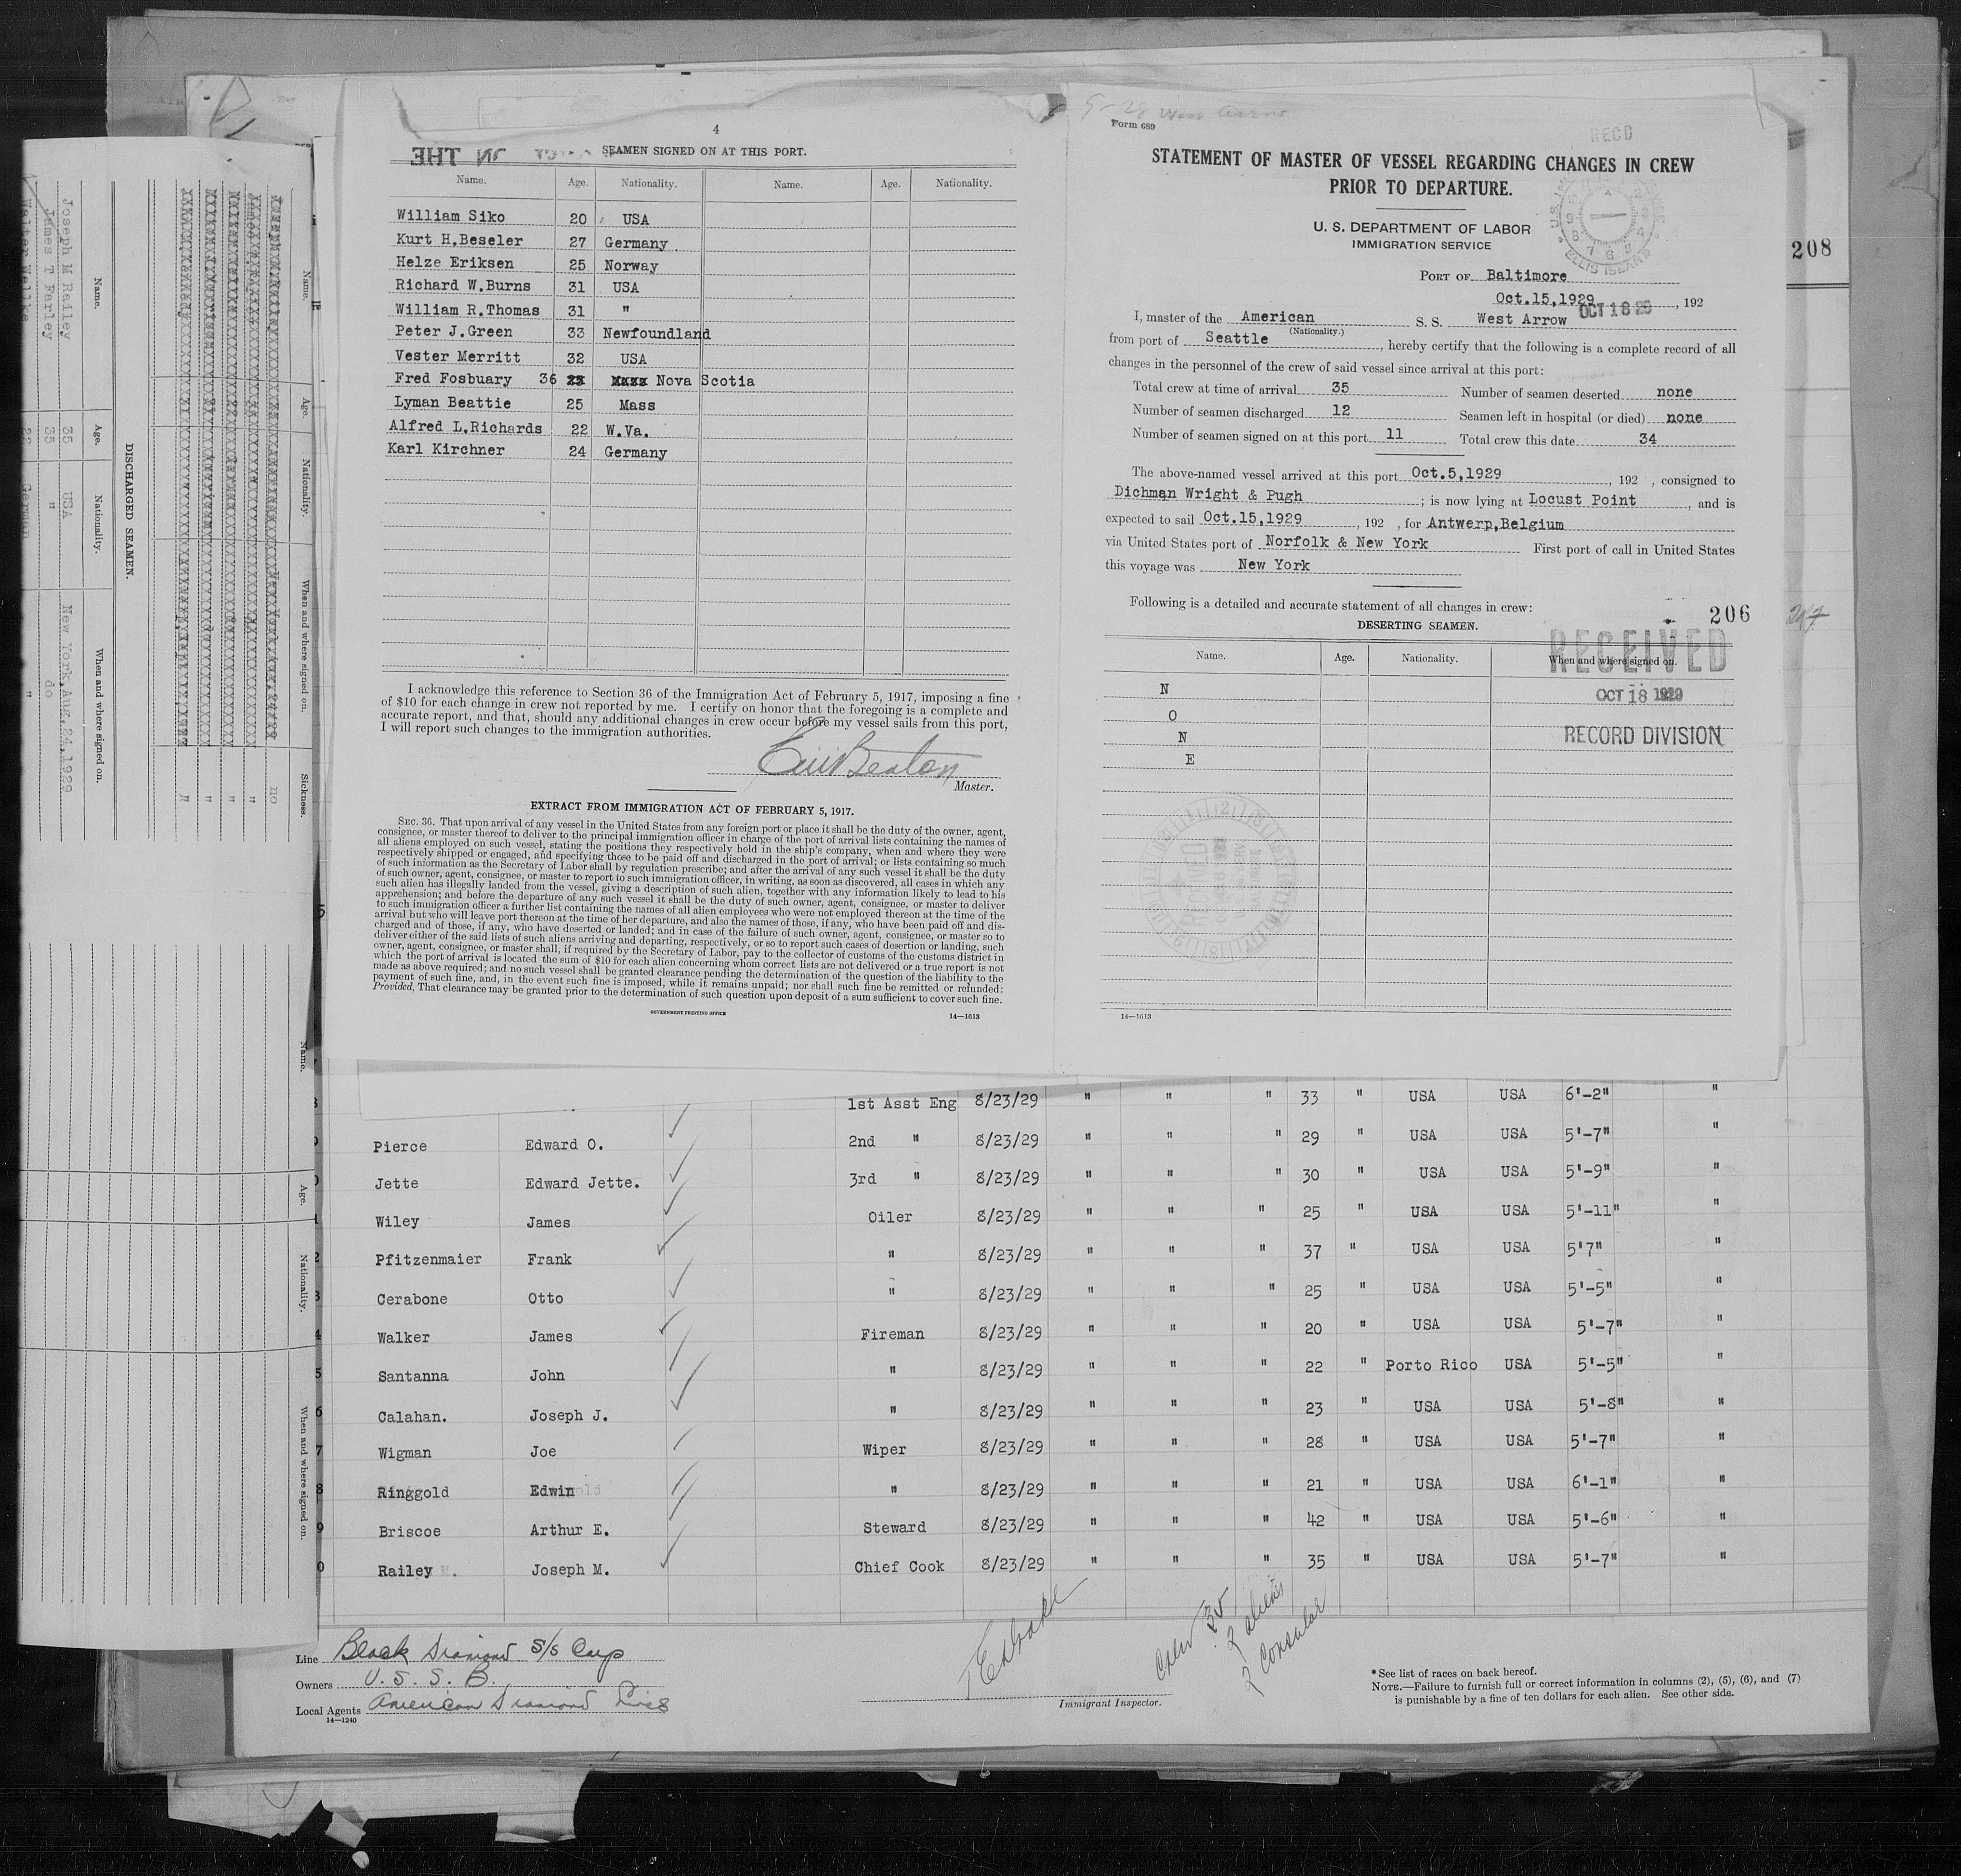 4
SEAMEN SIGNED ON AT THIS PORT.
Name. Age. Nationality. Name. Age. Nationality.
William Siko 20 USA
Kurt H.Beseler 27 Germany
Helze Eriksen 25 Norway
Richard W.Burns 31 USA
William R.Thomas 31 "
Peter J.Green 33 Newfoundland
Vester Merritt 32 USA
Fred Fosbuary 36 Nova Scotia
Lyman Beattie 25 Mass
Alfred L.Richards 22 W.Va.
Karl Kirchner 24 Germany
I acknowledge this reference to Section 36 of the Immigration Act of February 5, 1917, imposing a fine
of $10 for each change in crew not reported by me. I certify on honor that the foregoing is a complete and
accurate report, and that, should any additional changes in crew occur before my vessel sails from this port,
I will report such changes to the immigration authorities.
Master.
EXTRACT FROM IMMIGRATION ACT OF FEBRUARY 5, 1917.
SEC. 36. That upon arrival of any vessel in the United States from any foreign port or place it shall be the duty of the owner, agent,
consignee, or master thereof to deliver to the principal immigration officer in charge of the port of arrival lists containing the names of
all aliens employed on such vessel, stating the positions they respectively hold in the ship's company, when and where they were
respectively shipped or engaged, and specifying those to be paid off and discharged in the port of arrival; or lists containing so much
of such information as the Secretary of Labor shall by regulation prescribe; and after the arrival of any such vessel it shall be the duty
of such owner, agent, consignee, or master to report to such immigration officer, in writing, as soon as discovered, all cases in which any
such alien has illegally landed from the vessel, giving a description of such alien, together with any information likely to lead to his
apprehension; and before the departure of any such vessel it shall be the duty of such owner, agent, consignee, or master to deliver
to such immigration officer a further list containing the names of all alien employees who were not employed thereon at the time of the
arrival but who will leave port thereon at the time of her departure, and also the names of those, if any, who have been paid off and dis-
charged and of those, if any, who have deserted or landed; and in case of the failure of such owner, agent, consignee, or master so to
deliver either of the said lists of such aliens arriving and departing, respectively, or so to report such cases of desertion or landing, such
owner, agent, consignee, or master shall, if required by the Secretary of Labor, pay to the collector of customs of the customs district in
which the port of arrival is located the sum of $10 for each alien concerning whom correct lists are not delivered or a true report is not
made as above required; and no such vessel shall be granted clearance pending the determination of the question of the liability to the
payment of such fine, and, in the event such fine is imposed, while it remains unpaid; nor shall such fine be remitted or refunded:
Provided, That clearance may be granted prior to the determination of such question upon deposit of a sum sufficient to cover such fine.
GOVERNMENT PRINTING OFFICE 14—1613
West Arrow
Form 689
RECD
STATEMENT OF MASTER OF VESSEL REGARDING CHANGES IN CREW
PRIOR TO DEPARTURE.
U. S. DEPARTMENT OF LABOR
IMMIGRATION SERVICE
ELLIS ISLAND
208
PORT OF Baltimore
Oct.15,1929, 192
OCT 18 29
I, master of the American S. S. West Arrow
(Nationality.)
from port of Seattle, hereby certify that the following is a complete record of all
changes in the personnel of the crew of said vessel since arrival at this port:
Total crew at time of arrival 35 Number of seamen deserted none
Number of seamen discharged 12 Seamen left in hospital (or died) none
Number of seamen signed on at this port 11 Total crew this date 34
The above-named vessel arrived at this port Oct.5,1929, 192 , consigned to
Dichman Wright & Pugh; is now lying at Locust Point, and is
expected to sail Oct.15,1929, 192 , for Antwerp,Belgium
via United States port of Norfolk & New York First port of call in United States
this voyage was New York
Following is a detailed and accurate statement of all changes in crew:
206
207
DESERTING SEAMEN.
Name. Age. Nationality. When and where signed on.
RECEIVED
OCT 18 1929
RECORD DIVISION
N
O
N
E
14—1613
DISCHARGED SEAMEN.
Name. Age. Nationality. When and where signed on.
Joseph M Railey 35 USA New York,Aug.24,1929
James T Farley 35 " do
Walter Wellke 22 German "
Name. Age. Nationality. When and where signed on. Sickness.
no
"
"
"
"
Name. Age. Nationality. When and where signed on.
1st Asst Eng 8/23/29 " " " 33 " USA USA 6'-2" "
Pierce Edward O. 2nd " 8/23/29 " " " 29 " USA USA 5'-7" "
Jette Edward Jette. 3rd " 8/23/29 " " " 30 " USA USA 5'-9" "
Wiley James Oiler 8/23/29 " " " 25 " USA USA 5'-11" "
Pfitzenmaier Frank " 8/23/29 " " " 37 " USA USA 5'7" "
Cerabone Otto " 8/23/29 " " " 25 " USA USA 5'-5" "
Walker James Fireman 8/23/29 " " " 20 " USA USA 5'-7" "
Santanna John " 8/23/29 " " " 22 " Porto Rico USA 5'-5" "
Calahan. Joseph J. " 8/23/29 " " " 23 " USA USA 5'-8" "
Wigman Joe Wiper 8/23/29 " " " 28 " USA USA 5'-7" "
Ringgold Edwin " 8/23/29 " " " 21 " USA USA 6'-1" "
Briscoe Arthur E. Steward 8/23/29 " " " 42 " USA USA 5'-6" "
Railey Joseph M. Chief Cook 8/23/29 " " " 35 " USA USA 5'-7" "
Line Black Diamond S/S Corp
Owners U. S. S. B.
Local Agents American Diamond Lines
14—1240
Crew 35
2 aliens
2 Consular
Immigrant Inspector.
* See list of races on back hereof.
NOTE.—Failure to furnish full or correct information in columns (2), (5), (6), and (7)
is punishable by a fine of ten dollars for each alien. See other side.